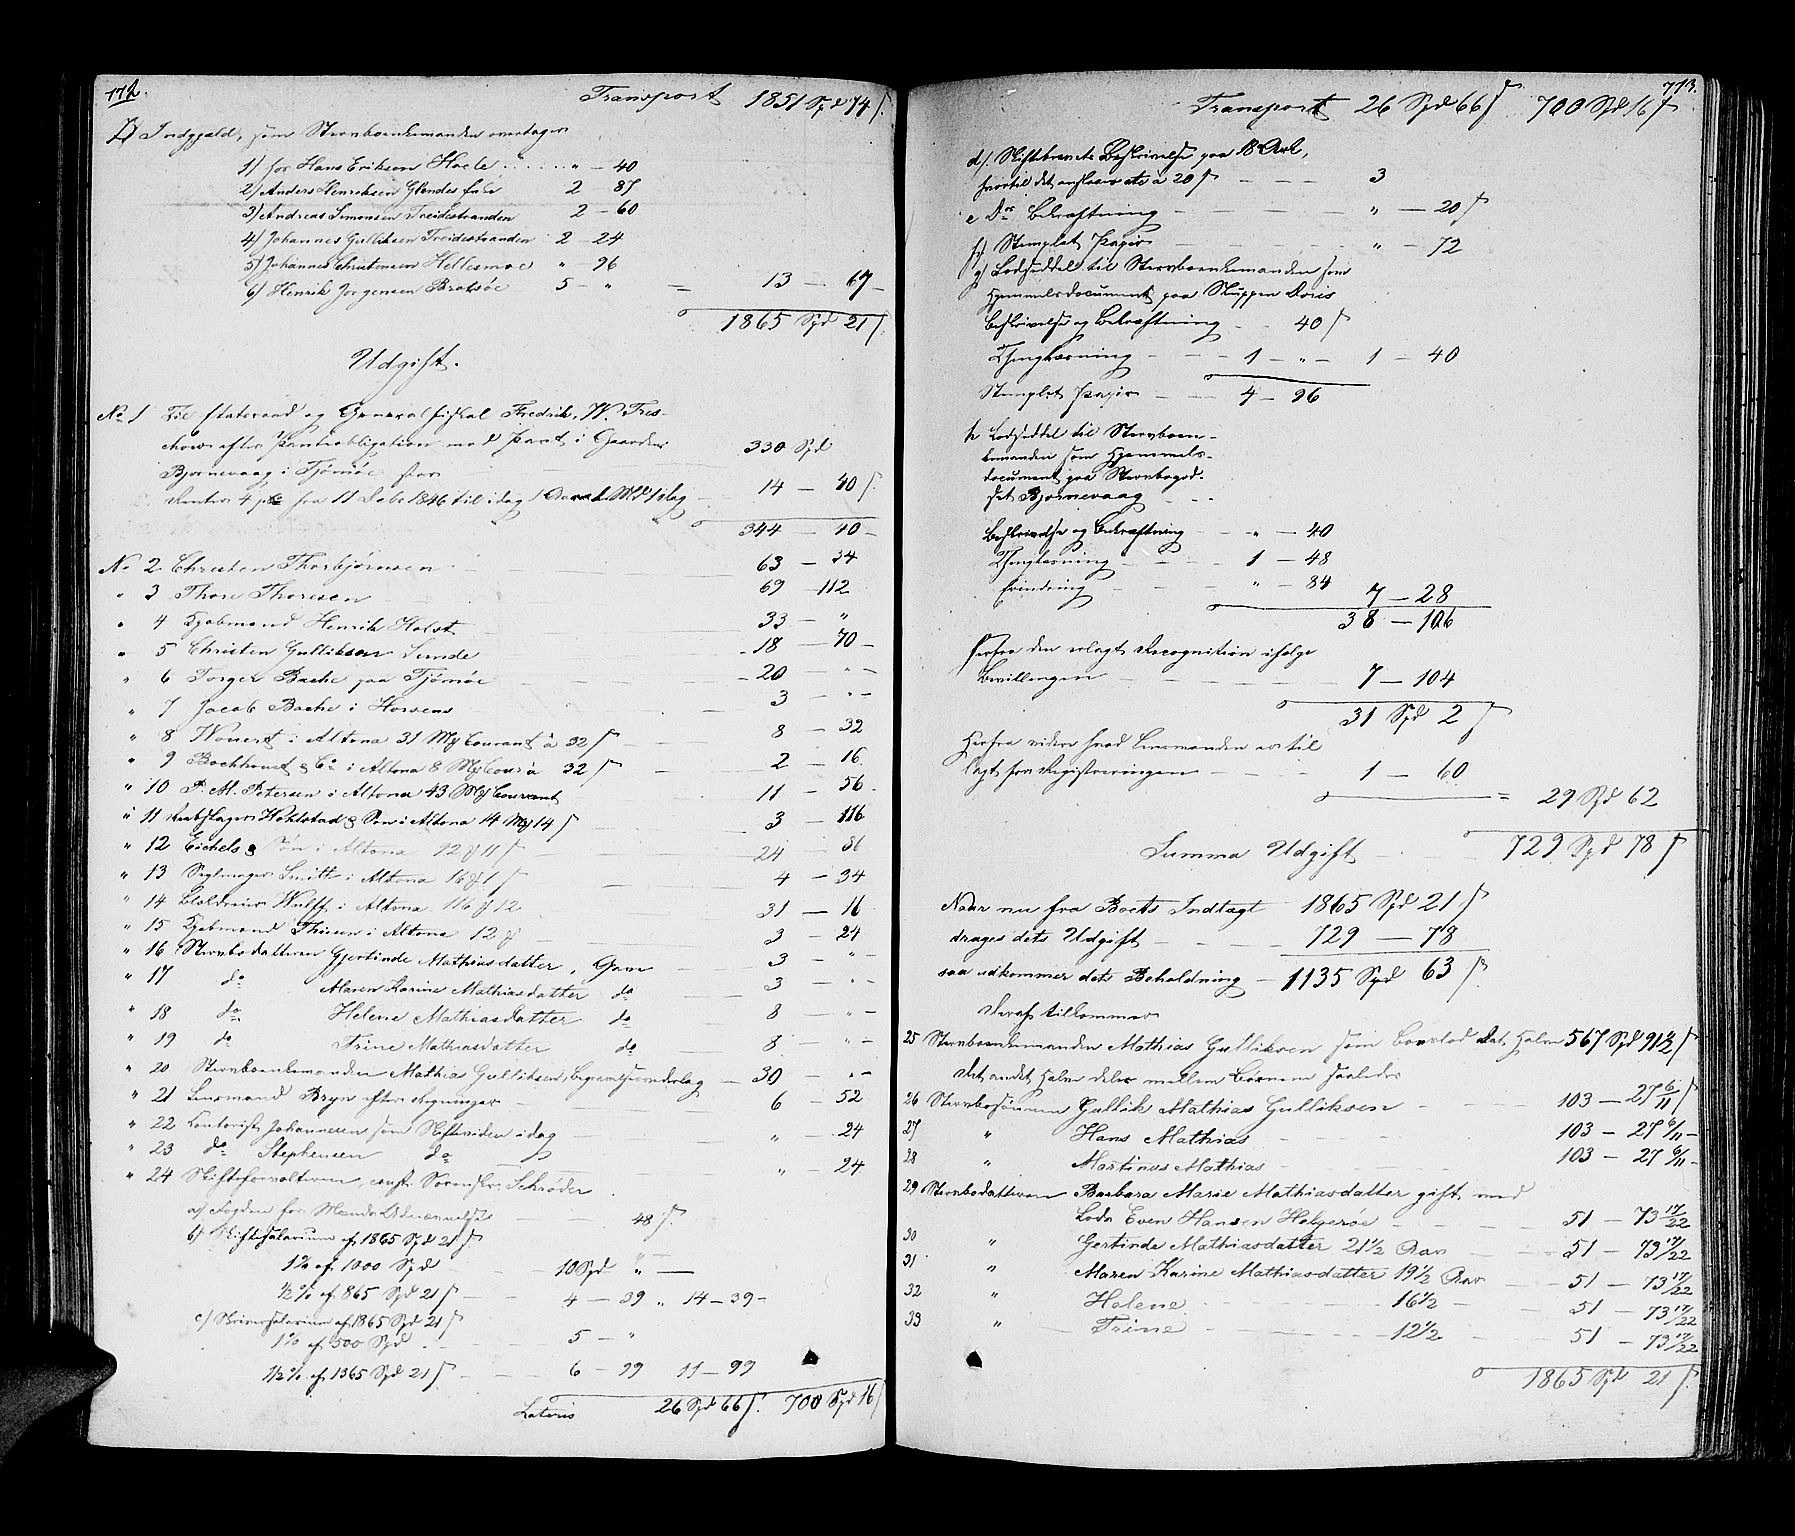 172.
Transport 1851 Spd 74 ſ.
D Indgjæld, som Stervboenkemanden overtager
1) for Hans Eriksen Hoele " - 40
2) Anders Henriksen Glendes Enke 2 87
3) Andreas Simonsen Treidestranden 2 - 60
4) Johannes Gulliksen Treidestranden 2 - 24
5) Johannes Christensen Hellesmoe " - 96
6) Henrik Jorgensen Bratsöe 5 - " = 13 - 67 -
1865 Spd 21 ſ.
Udgift.
No 1 Til Statsraad og Generalfiskal Fredrik W. Tres-
chow efter Pantobligation med Pant i Gaarden
Bjornevaag i Tjømöe stor 330 Spd
Renter 4 pCt fra 11 Debr 1846 til idag 14 - 40 ſ.
344 - 40 -
No 2 Christen Thorbjørnsen 63 - 34
" 3 Thore Thoresen 69 - 112
" 4 Kjøbmand Henrik Holst 33 - "
" 5 Christen Gulliksen Sunde 18 - 70 -
" 6 Torger Bache paa Tjømöe 20 - " -
" 7 Jacob Bache i Horsens 3 - " -
" 8 Wouert i Altona 31 Mk Courant à 32 ſ 8 - 32
" 9 Bockhout & Co i Altona 8 Mk Cour à 32 ſ 2 - 16
" 10 P. M. Petersen i Altona 43 Mk Courant 11 - 56
" 11 Rebslager Wohlstad & Søn i Altona 14 Mk 14 ſ 3 - 116
" 12 Eichels & Søn i Altona 12 11 ſ 24
" 13 Seglmager Smitt i Altona 16 1 ſ 4 - 34
" 14 Wulff i Altona 116 12 31 - 16
" 15 Kjøbmand Thiesen i Altona 12 3 - 24
" 16 Stervbodatteren Gjertinde Mathiasdatter, Gave 3 - " -
" 17 do Maren Karine Mathiasdatter do 3 - " -
" 18 do Helene Mathiasdatter do 8 - " -
" 19 do Trine Mathiasdatter do 8 - " -
" 20 Stervboenkemanden Mathias Gulliksen, begravelsesvederlag 30 - " -
" 21 Lensmand Bryn efter Regninger 6 - 52
" 22 Contorist Johannesen som Skiftevidne idag " - 24
" 23 do Stephensen do " - 24
" 24 Skifteforvalteren, const. Sorenskr. Schrøder
a) Fogden for Mænds Udnævnelse 48 ſ.
b) Skiftesalarium af 1865 Spd 21 ſ
1% af 1000 Spd 10 Spd " -
1/2% af 865 Spd 21 ſ 4 - 39 " 14 - 39 -
c) Skriversalarium af 1865 Spd 21 ſ
1% af 500 Spd 5 - "
1/2% af 1365 Spd 21 ſ 6 - 99 11 - 99
Lateris 26 Spd 66 ſ. 700 Spd 16 ſ
773.
Transport 26 Spd 66 ſ 700 Spd 16 ſ
d/. Skiftebrevets Beskrivelse paa 18 Ark,
hvortil det ansloes ate à 20 ſ 3
e Ds Bekræftning " - 20 ſ
f) Stemplet Papir " - 72
g) Lodseddel til Stervboenkemanden som
Hjemmelsdocument paa Skuppen Doris
Beskrivelse og Bekræftning 40 ſ
Thinglæsning 1 - " - 1 - 40
Stemplet Papir 4 - 96
h Lodseddel til Stervboen-
kemanden som Hjemmels-
document paa Stervbogod-
set Bjornevaag
Beskrivelse og Bekræftning " - 40
Thinglæsning 1 - 48
Erindring " - 84 7 - 28
38 - 106
Herfra den erlagt Recognition ifølge
Bevillingen 7 - 104
31 Spd 2 ſ
Herfra videre hvad Lensmanden er til
lagt for Registreringen 1 - 60
= 29 Spd 62
Summa Udgift 729 Spd 78 ſ
Naar nu fra Boets Indtægt 1865 Spd 21 ſ
drages dets Udgift 729 - 78
saa udkommer dets Beholdning 1135 Spd 63 ſ
Deraf tilkommer
25 Stervboenkemanden Mathias Gulliksen som Boeslod det Halve 567 Spd 91 1/2 ſ
Det andet Halve deles mellem Børnene saaledes
26 Stervbosönnen Gullik Mathias Gulliksen 103 - 27 6/11 ſ
27 " Hans Mathias 103 - 27 6/11 -
28 " Martinus Mathias 103 - 27 6/11 -
29 Stervbodatteren Barbara Marie Mathiasdatter gift med
Lods Even Hansen Helgeröe 51 - 73 17/22
30 " Gertinde Mathiasdatter 21 1/2 Aar 51 - 73 17/22
31 " Maren Karine Mathiasdatter 19 1/2 Aar 51 - 73 17/22
32 " Helene 16 1/2 51 - 73 17/22
33 " Trine 12 1/2 51 - 73 17/22
1865 Spd 21 ſ.